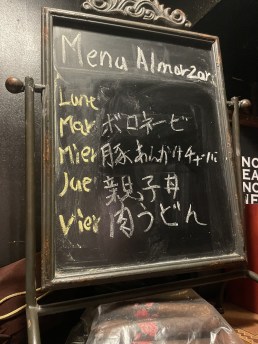 Menu Almorzar
Lune
Mar ボロネーゼ
Mier 豚あんかけチャーハン
Jue 親子丼
Vier 肉うどん
NO
EA
NO